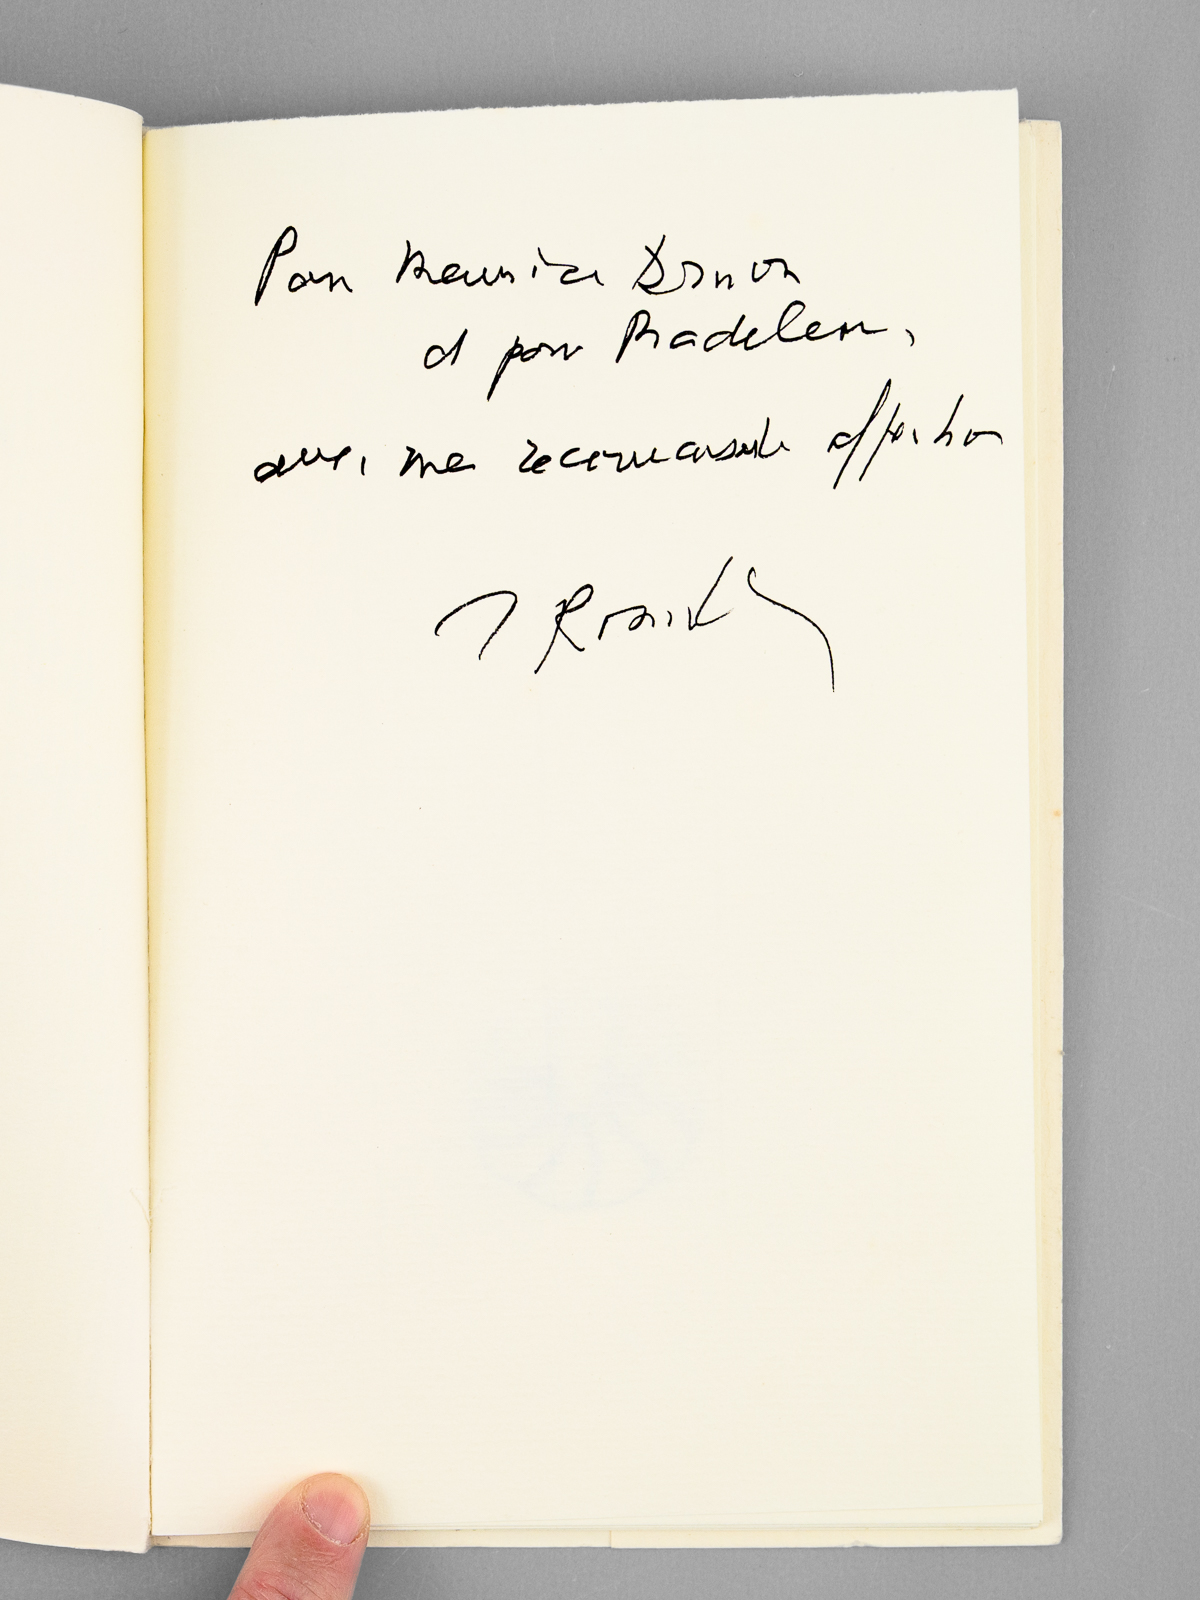 Pour Maurice Druon
et pour Madeleine,
avec ma reconnaissante affection
J Romilly